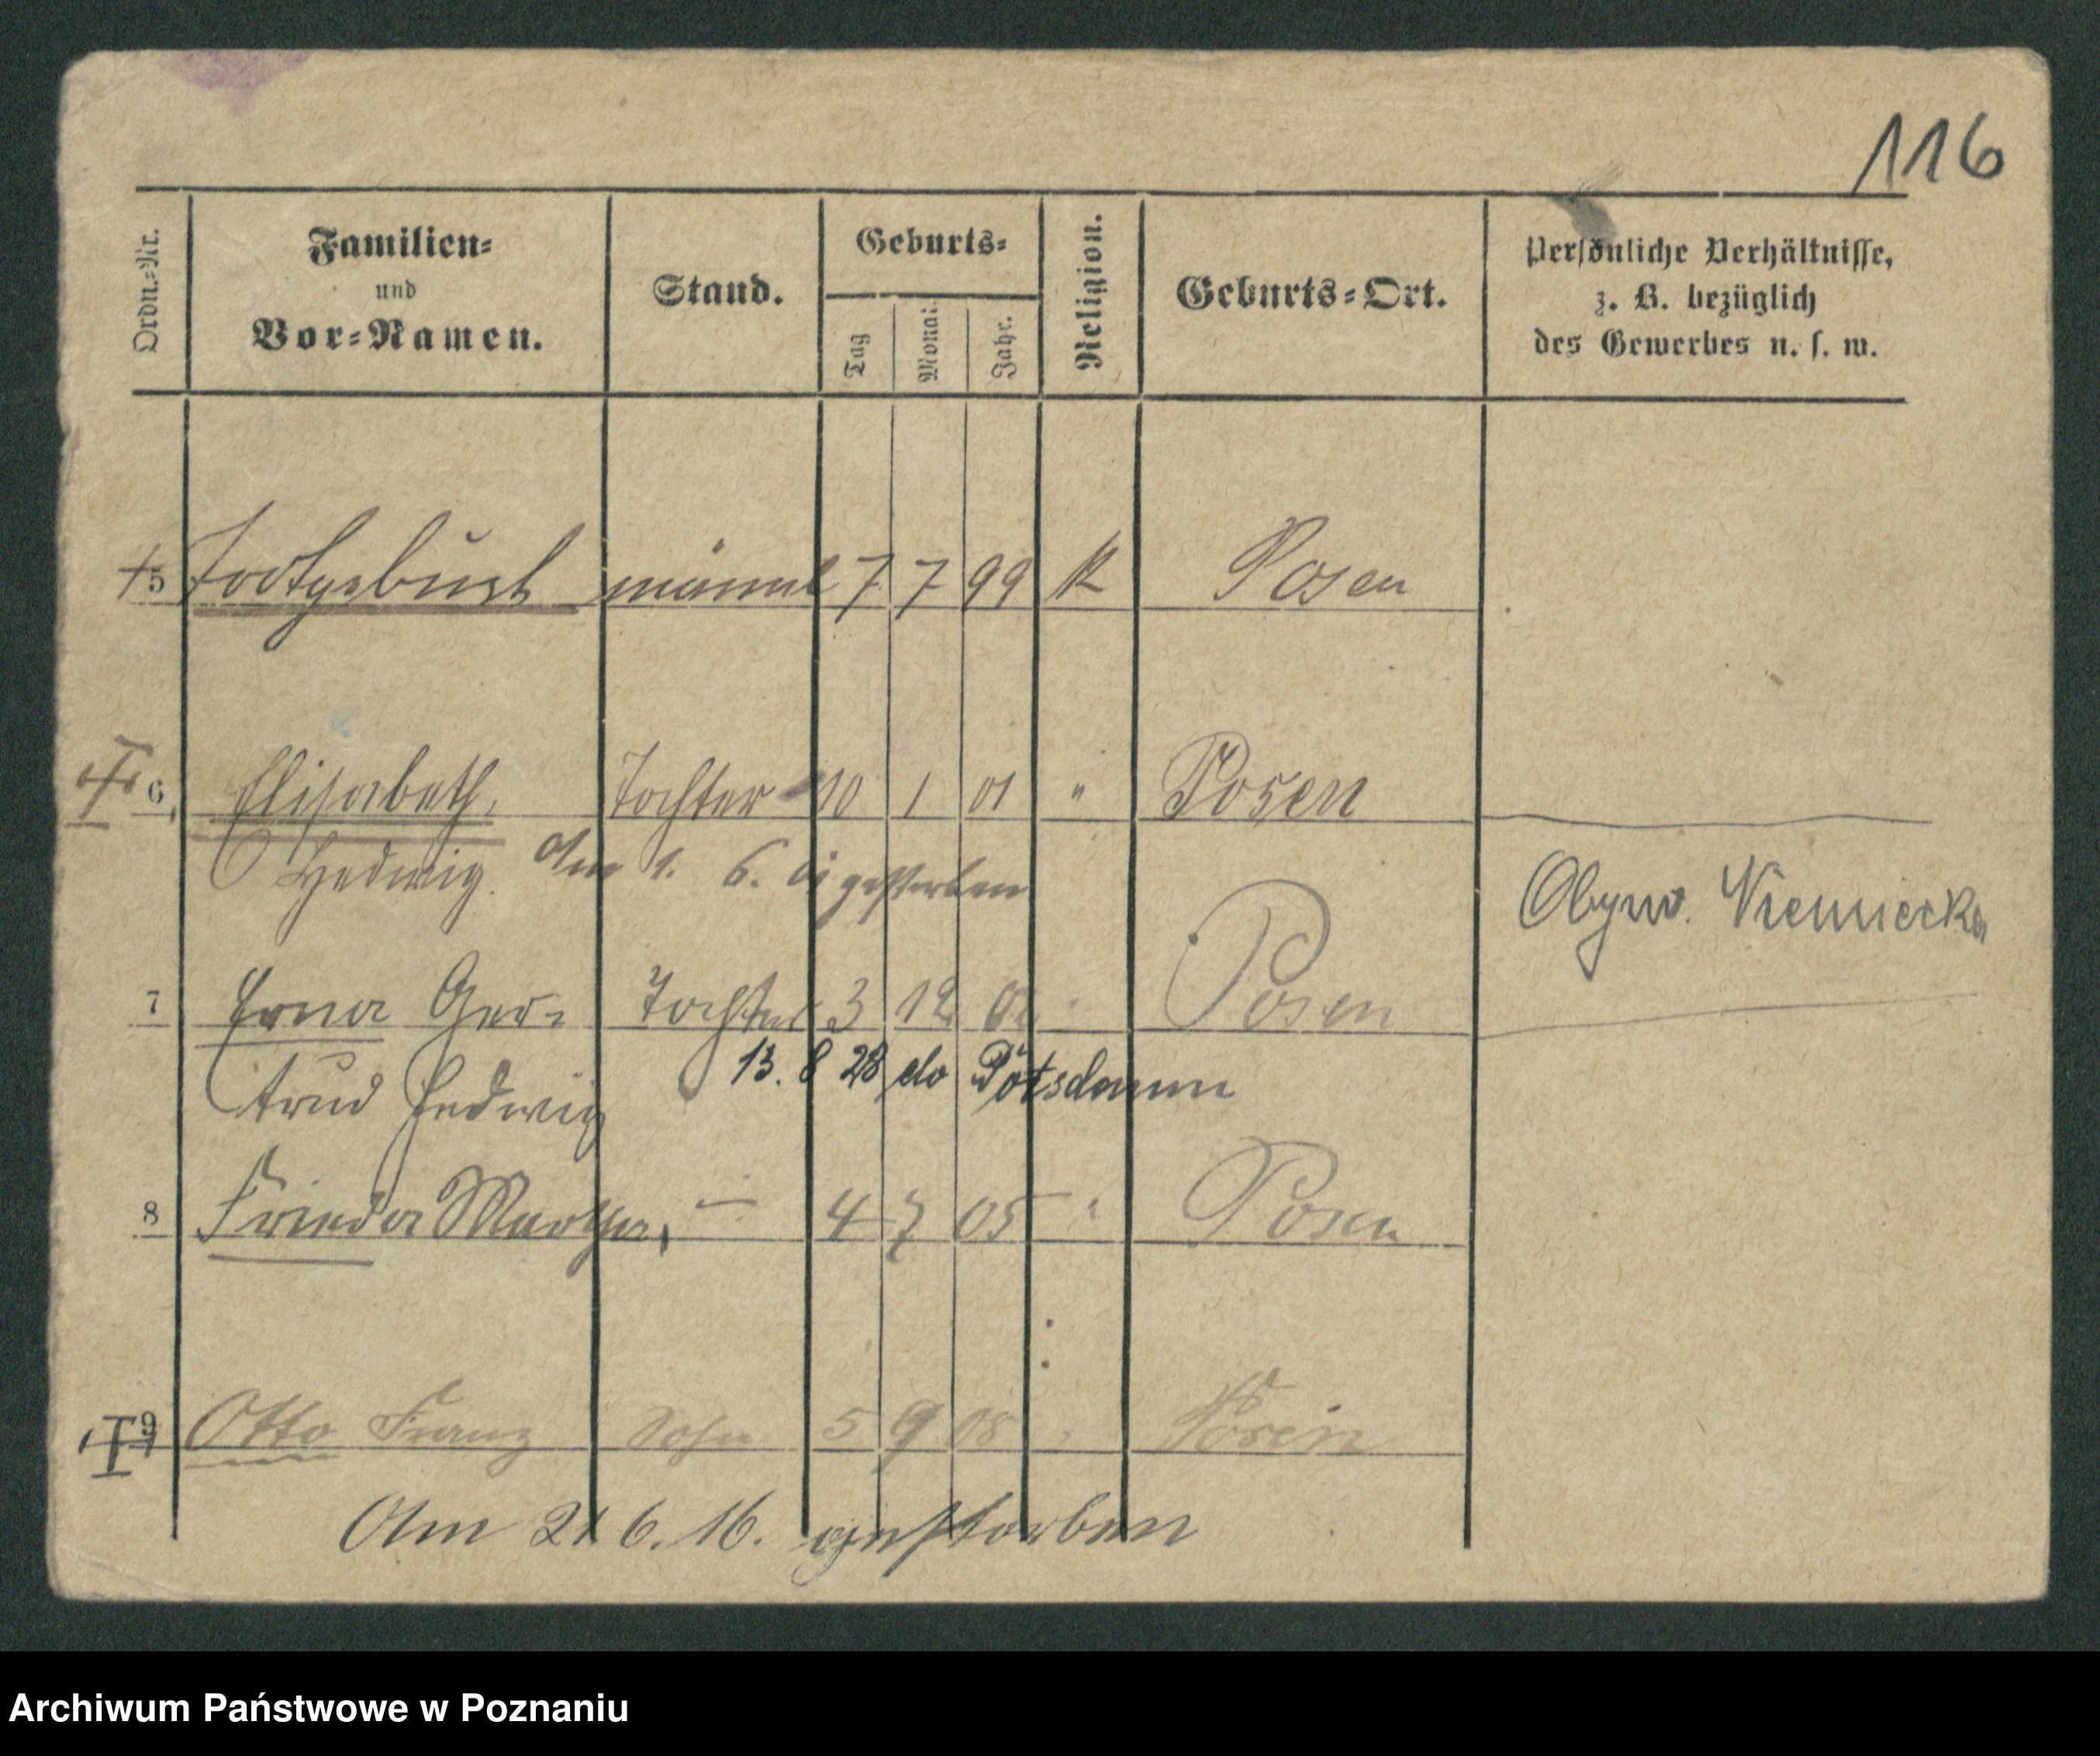 116
Ordn.-Nr.
Familien-
und
Vor-Namen.
Stand.
Geburts-
Tag
Monat.
Jahr.
Religion.
Geburts-Ort.
Persönliche Verhältnisse,
z. B. bezüglich
des Gewerbes u. s. w.
+ 5 Todtgeburt männl 7 7 99 K Posen
6 Elisabeth, Tochter 10 1 01 " Posen
Hedwig. Am 1. 6. 01 gestorben
Obyw. Niemiecka
7 Erna Ger- Tochter 3 12 02 Posen
trud Hedwig
13. 8 28 do Potsdamm
8 Frieda Martha, — 4 7 05 " Posen
9 Otto Franz Sohn 5 9 08 Posen
Am 21 6. 16. gestorben
Archiwum Państwowe w Poznaniu